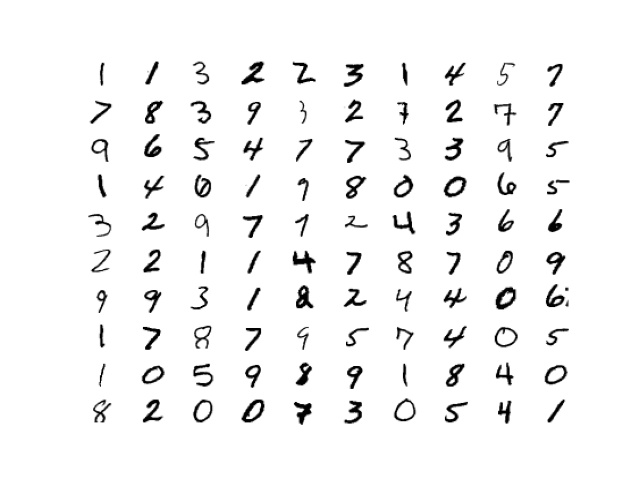 1 1 3 2 2 3 1 4 5 7
7 8 3 9 3 2 7 2 7 7
9 6 5 4 7 7 3 3 9 5
1 4 0 1 9 8 0 0 6 5
3 2 9 7 1 2 4 3 6 6
2 2 1 1 4 7 8 7 0 9
9 9 3 1 8 2 4 4 0 6
1 7 8 7 9 5 7 4 0 5
1 0 5 9 8 9 1 8 4 0
8 2 0 0 7 3 0 5 4 1